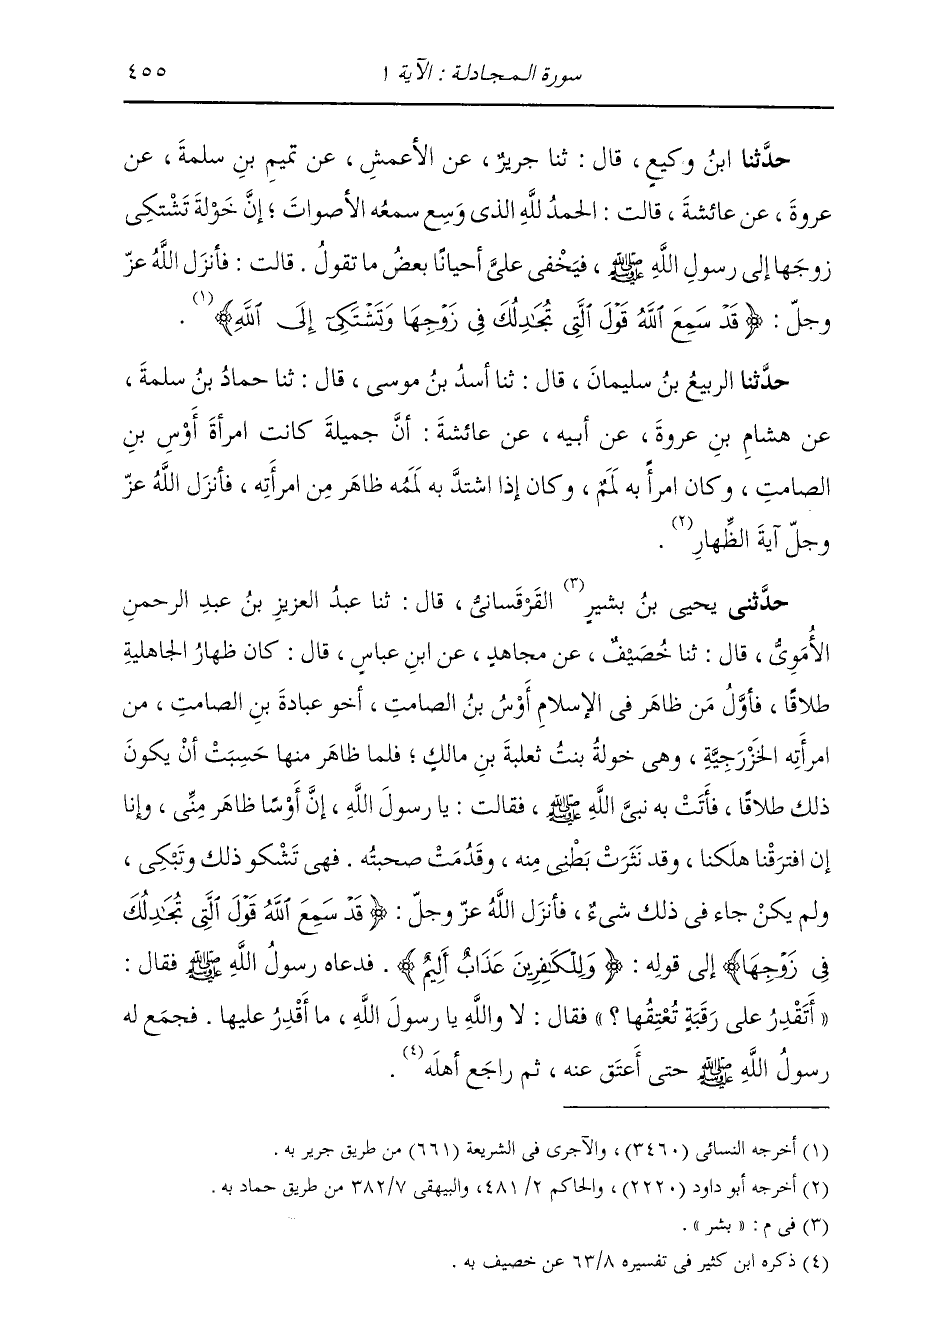 سورة المجادلة : الآية ١
٤٥٥
حدَّثنا ابنُ وكيعٍ ، قال : ثنا جريرٌ ، عن الأعمشِ ، عن تميمِ بنِ سلمةَ ، عن
عروةَ ، عن عائشةَ ، قالت : الحمدُ للَّهِ الذى وَسِع سمعُه الأصواتَ ؛ إنَّ خَوْلةَ تَشْتكِى
زوجَها إلى رسولِ اللَّهِ ﷺ ، فيَخْفى علىَّ أحيانًا بعضُ ما تقولُ . قالت : فأنزَل اللَّهُ عزّ
وجلّ : ﴿ قَدْ سَمِعَ ٱللَّهُ قَوْلَ ٱلَّتِى تُجَٰدِلُكَ فِى زَوْجِهَا وَتَشْتَكِىٓ إِلَى ٱللَّهِ﴾(١) .
حدَّثنا الربيعُ بنُ سليمانَ ، قال : ثنا أسدُ بنُ موسى ، قال : ثنا حمادُ بنُ سلمةَ ،
عن هشامِ بنِ عروةَ ، عن أبيه ، عن عائشةَ : أنَّ جميلةَ كانت امرأةَ أَوْسِ بنِ
الصامتِ ، وكان امرأً به لَمَمٌ ، وكان إذا اشتدَّ به لَمَمُه ظاهَر مِن امرأتِه ، فأنزَل اللَّهُ عزّ
وجلّ آيةَ الظِّهارِ(٢) .
حدَّثنى يحيى بنُ بشيرٍ(٣) القَرْقَسانىُّ ، قال : ثنا عبدُ العزيزِ بنُ عبدِ الرحمنِ
الأُمَوِىُّ ، قال : ثنا خُصَيْفٌ ، عن مجاهدٍ ، عن ابنِ عباسٍ ، قال : كان ظهارُ الجاهليةِ
طلاقًا ، فأوَّلُ مَن ظاهَر فى الإسلامِ أَوْسُ بنُ الصامتِ ، أخو عبادةَ بنِ الصامتِ ، من
امرأتِه الخَزْرَجِيَّةِ ، وهى خولةُ بنتُ ثعلبةَ بنِ مالكٍ ؛ فلما ظاهَر منها حَسِبَتْ أنْ يكونَ
ذلك طلاقًا ، فأَتَتْ به نبىَّ اللَّهِ ﷺ ، فقالت : يا رسولَ اللَّهِ ، إنَّ أَوْسًا ظاهَر مِنِّى ، وإنا
إن افترَقْنا هلَكنا ، وقد نَثَرَتْ بَطْنِى منه ، وقَدُمَتْ صحبتُه . فهى تَشْكو ذلك وتَبْكِى ،
ولم يكنْ جاء فى ذلك شىءٌ ، فأنزَل اللَّهُ عزّ وجلّ : ﴿ قَدْ سَمِعَ ٱللَّهُ قَوْلَ ٱلَّتِى تُجَٰدِلُكَ
فِى زَوْجِهَا﴾ إلى قولِه : ﴿ وَلِلْكَٰفِرِينَ عَذَابٌ أَلِيمٌ ﴾ . فدعاه رسولُ اللَّهِ ﷺ فقال :
« أَتَقْدِرُ على رَقَبَةٍ تُعْتِقُها ؟ » فقال : لا واللَّهِ يا رسولَ اللَّهِ ، ما أَقْدِرُ عليها . فجمَع له
رسولُ اللَّهِ ﷺ حتى أَعتَق عنه ، ثم راجَع أهلَه(٤) .
(١) أخرجه النسائى (٣٤٦٠) ، والآجرى فى الشريعة (٦٦١) من طريق جرير به .
(٢) أخرجه أبو داود (٢٢٢٠) ، والحاكم ٢/ ٤٨١، والبيهقى ٣٨٢/٧ من طريق حماد به .
(٣) فى م : « بشر » .
(٤) ذكره ابن كثير فى تفسيره ٦٣/٨ عن خصيف به .